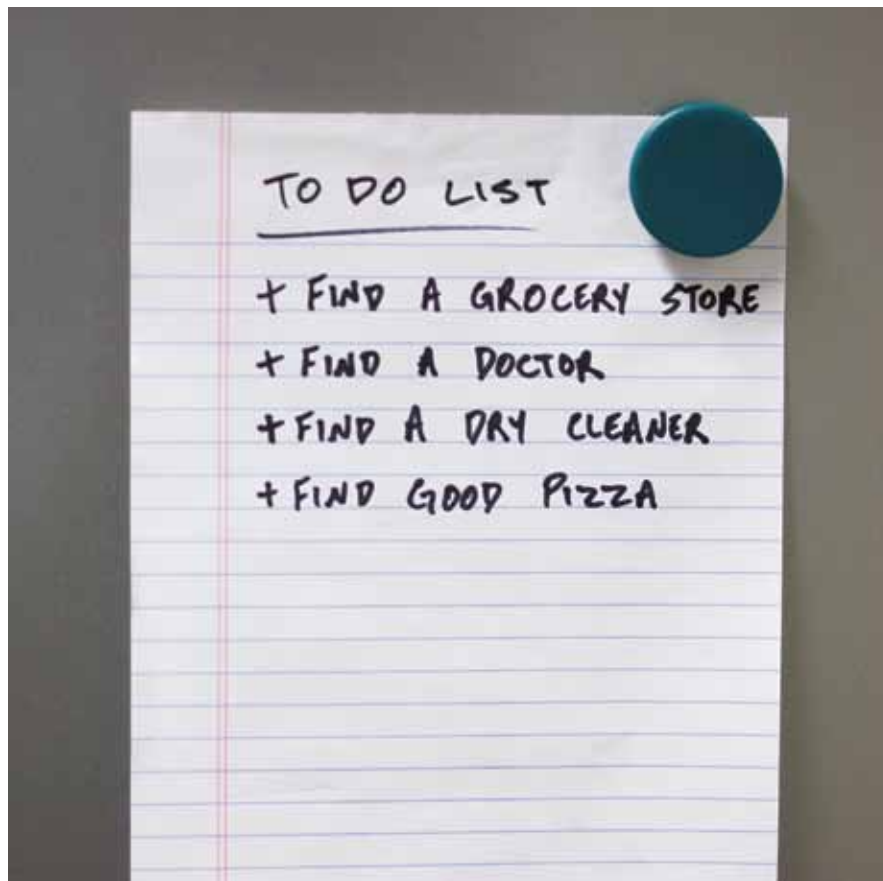 TO DO LIST
+ FIND A GROCERY STORE
+ FIND A DOCTOR
+ FIND A DRY CLEANER
+ FIND GOOD PIZZA